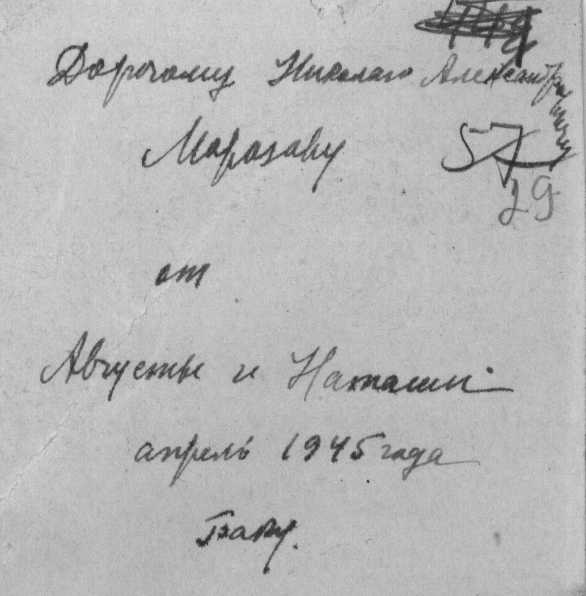 Дорогому Николаю Александровичу
Морозову
57
29
от
Августы и Наташи
апрель 1945 года
Баку.